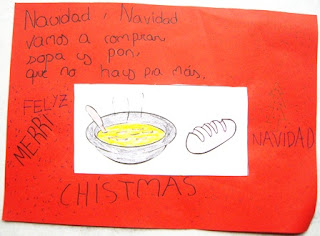 Navidad, Navidad
vamos a comprar
sopa y pan,
que no hay pa más.
FELIZ
MERRI
NAVIDAD
CHISTMAS